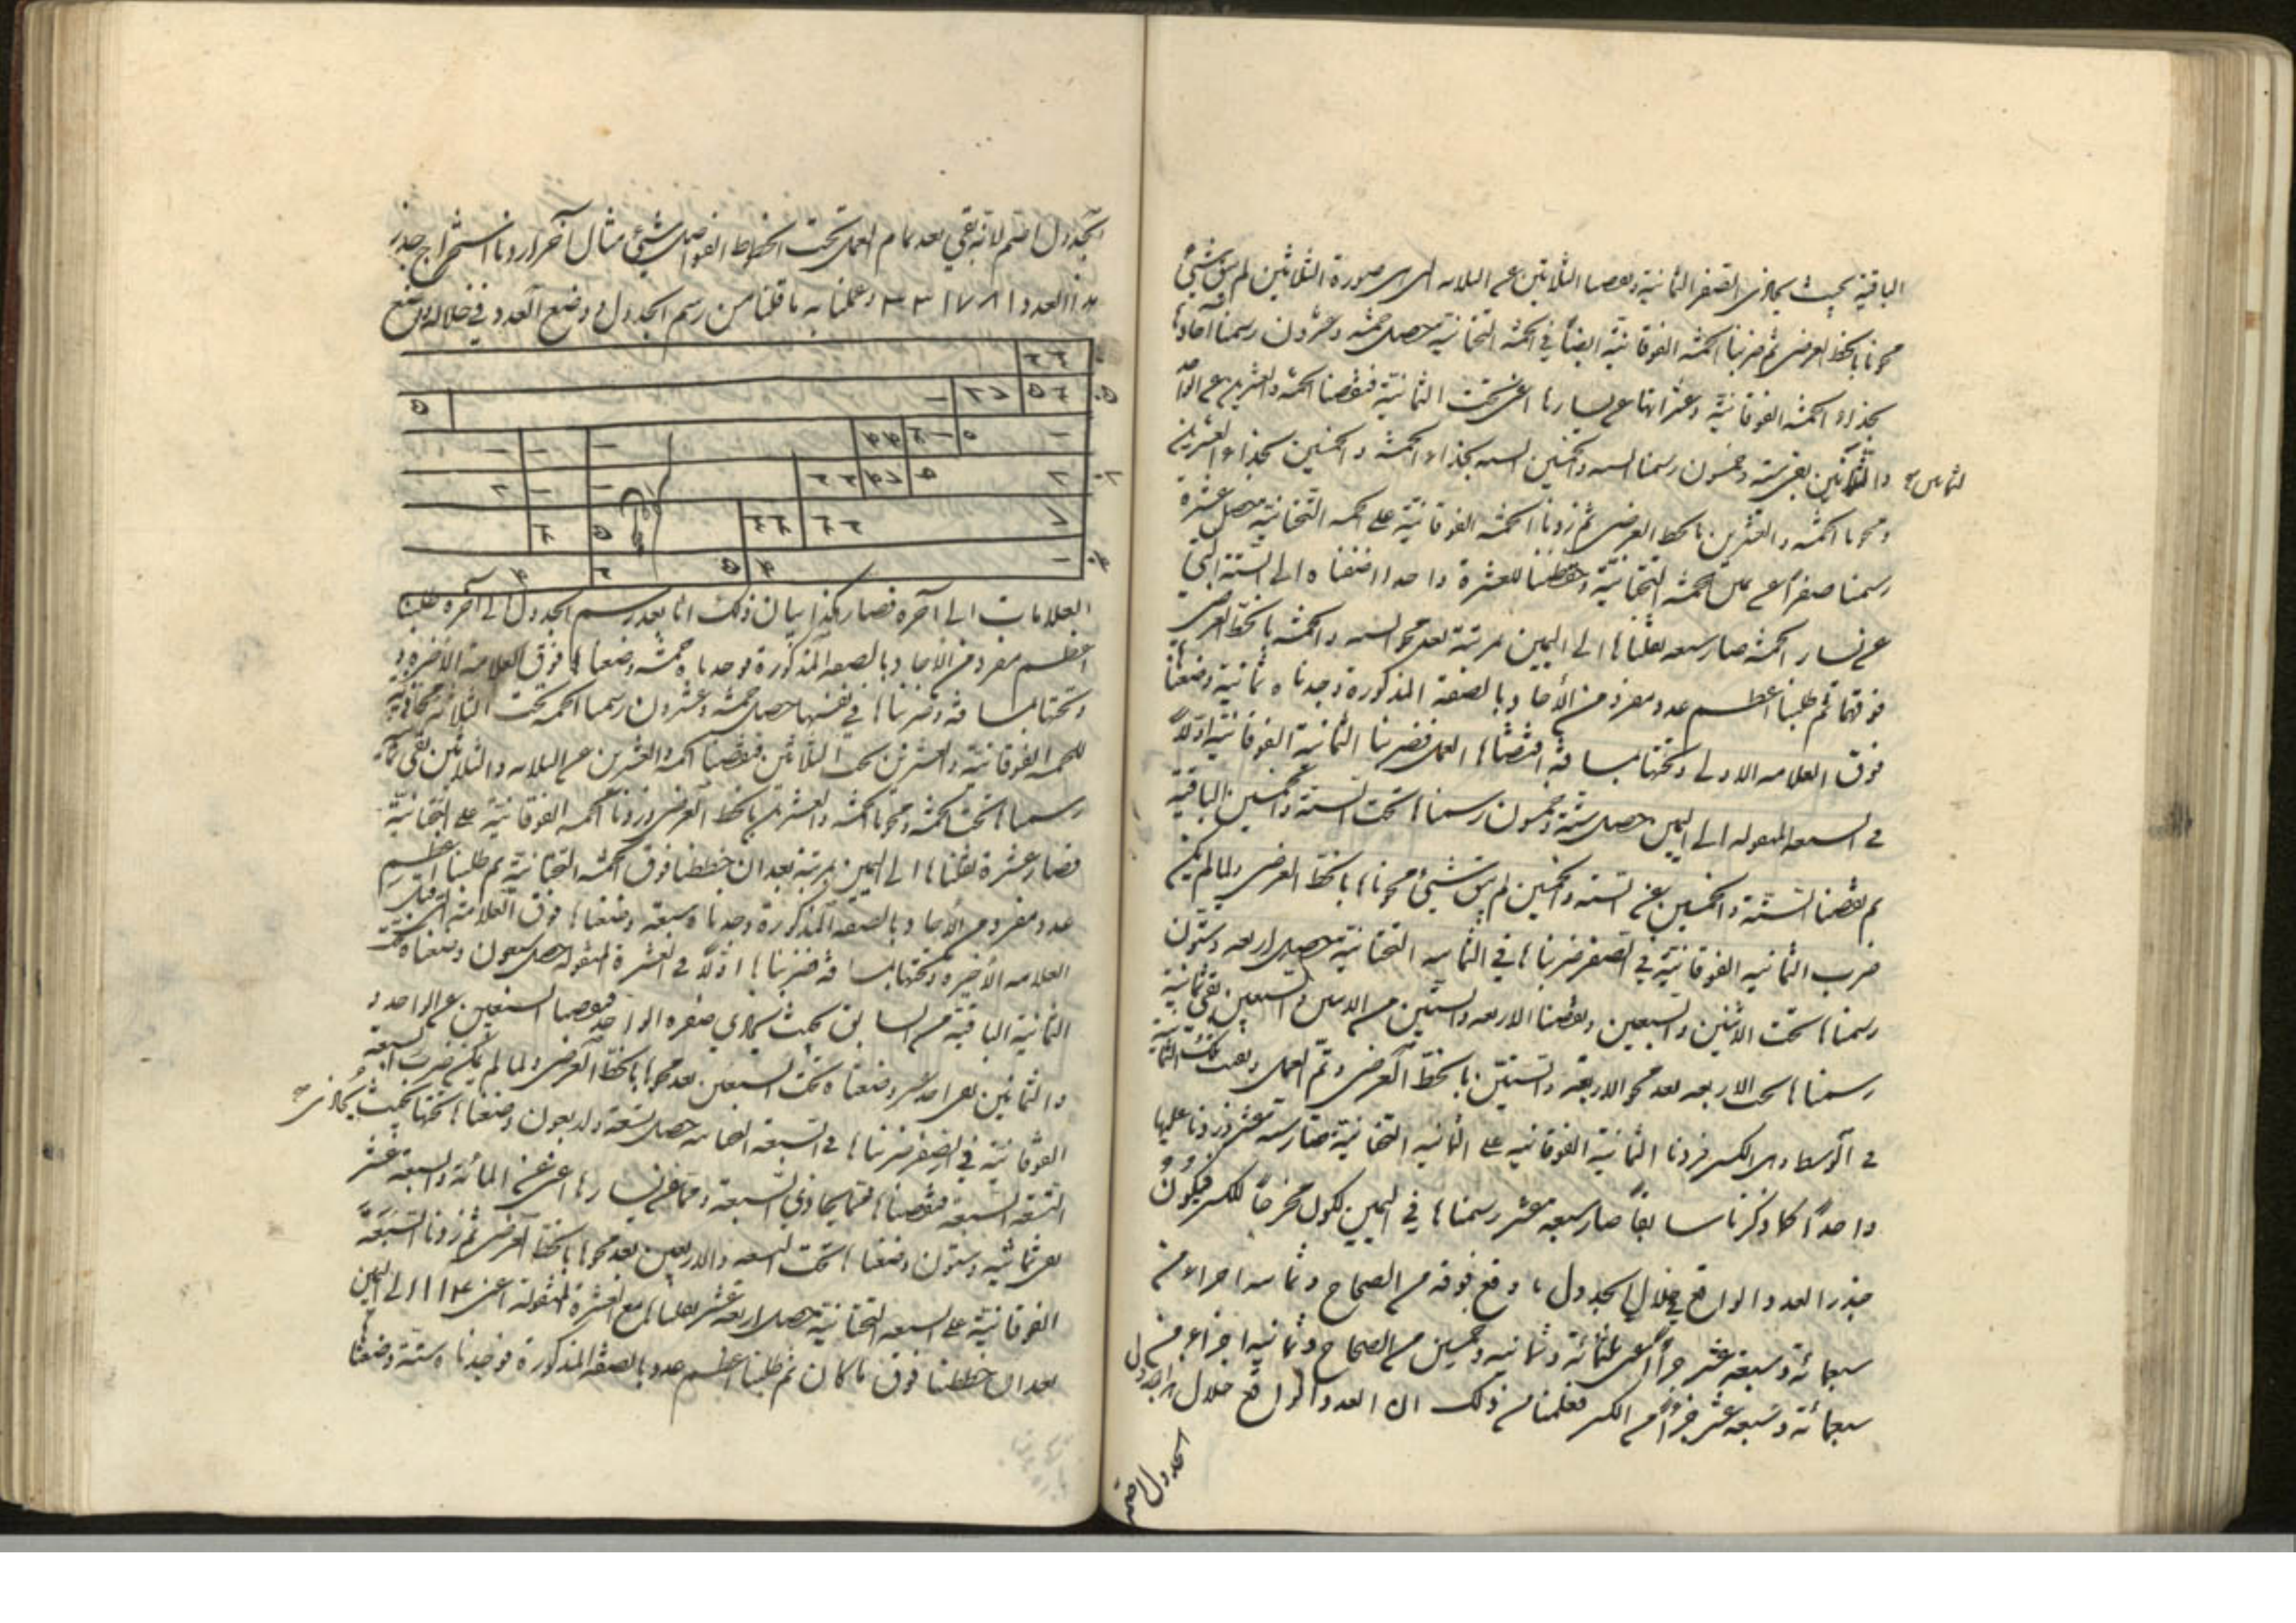 الباقية بحيث يحاذى الصفر الثمانية ونقصنا الثلاثين عن الثلاثة اى صورة الثلاثين لم يبق شيئ
محوناها بالخط العرضى ثم ضربنا الخمسة الفوقانية ايضاً فى الخمسة التحتانية حصل خمسة وعشرون رسمنا آحادها
بحذاء الخمسة الفوقانية وعشراتها على يسارها اعنى تحت الثمانية فنقصنا الخمسة والعشرين عن الواحد
والثمانين بقى ستة وخمسون رسمنا الستة والخمسين الستة بحذاء الخمسة والخمسين بحذاء العشرين
ومحونا الخمسة والعشرين بالخط العرضى ثم زدنا الخمسة الفوقانية على الخمسة التحتانية حصل عشرة
رسمنا صفراً على يمين الخمسة التحتانية وحفظنا للعشرة واحدا اضفناه الى الستة التى
على يسار الخمسة صار سبعة نقلناها الى اليمين بمرتبة بعد محو الستة والخمسة بالخط العرضى
فوقهما ثم طلبنا اعظم عدد مفرد من الآحاد بالصفة المذكورة وجدناه ثمانية وضعناها
فوق العلامة الاولى وتحتها بمسافة اقتضاها العمل فضربنا الثمانية الفوقانية اولاً
فى السبعة المنقولة الى اليمين حصل ستة وخمسون رسمناها تحت الستة والخمسين الباقية
ثم نقصنا الستة والخمسين عن الستة والخمسين لم يبق شيئ محوناها بالخط العرضى ولما لم يمكن
ضرب الثمانية الفوقانية فى الصفر ضربناها فى الثمانية التحتانية حصل اربعة وستون
رسمناها تحت الاثنين والسبعين ونقصنا الاربعة والستين من الاثنين والسبعين بقى ثمانية
رسمناها تحت الاربعة بعد محو الاربعة والستين بالخط العرضى وتم العمل وبقيت تلك الثمانية
فى الوسط وهى الكسر فزدنا الثمانية الفوقانية على الثمانية التحتانية صارت ستة عشر زدنا عليها
واحداً كما ذكرنا سابقاً صار سبعة عشر رسمناها فى اليمين ليكون مخرجاً للكسر فيكون
جذر العدد الواقع فى خلال الجدول ما وقع فوقه من الصحاح وثمانية اجزاء من
سبعمائة وسبعة عشر جزأً اعنى ثلثمائة وثمانية وخمسين من الصحاح وثمانية اجزاء من
سبعمائة وسبعة عشر جزأً من الكسر فعلمنا من ذلك ان العدد الواقع خلال هذا الجدول
الجدول اصم
الجدول اصم لانه بقى بعد تمام العمل تحت الخطوط الفواصل شيئ مثال آخر اردنا استخراج جذر
هذا العدد ٣٣١٧٨١ وعملنا به ما قلنا من رسم الجدول ووضع العدد فى خلاله ووضع
العلامات الى آخره فصار هكذا بيان ذلك انا بعد رسم الجدول الى آخره طلبنا
اعظم مفرد من الآحاد بالصفة المذكورة فوجدناه خمسة وضعناها فوق العلامة الاخيرة و
وتحتها بمسافة وضربناها فى نفسها حصل خمسة وعشرون رسمنا الخمسة تحت الثلاثة محاذية
للخمسة الفوقانية والعشرين تحت الثلاثين فنقصنا الخمسة والعشرين عن الثلاثة والثلاثين بقى ثمانية
رسمناها تحت الخمسة ومحونا الخمسة والعشرين بالخط العرضى وزدنا الخمسة الفوقانية على التحتانية
فصار عشرة نقلناها الى اليمين بمرتبة بعد ان خططنا فوق الخمسة التحتانية ثم طلبنا اعظم
عدد مفرد من الآحاد بالصفة المذكورة وجدناه سبعة وضعناها فوق العلامة التى قبل
العلامة الاخيرة وتحتها بمسافة ضربناها اولاً فى العشرة المنقولة حصل سبعون وضعناه تحت
الثمانية الباقية من السابق بحيث يحاذى صفره الواحد فنقصنا السبعين عن الواحد و
والثمانين بقى احد عشر وضعناه تحت السبعين بعد محوها بالخط العرضى ولما لم يمكن ضرب السبعة
الفوقانية فى الصفر ضربناها فى السبعة التحتانية حصل تسعة واربعون وضعناها تحتها بحيث يحاذى
التسعة السبعة فنقصناها مما يحاذى السبعة ومما على يسارها اعنى عن المائة والسبعة عشر
بقى ثمانية وستون وضعناها تحت التسعة والاربعين بعد محوها بالخط العرضى ثم زدنا السبعة
الفوقانية على السبعة التحتانية حصل اربعة عشر نقلناها مع العشرة المنقولة اعنى ١١٤ الى اليمين
بعد ان خططنا فوق ما كان ثم طلبنا اعظم عدد بالصفة المذكورة فوجدناه ستة وضعناها